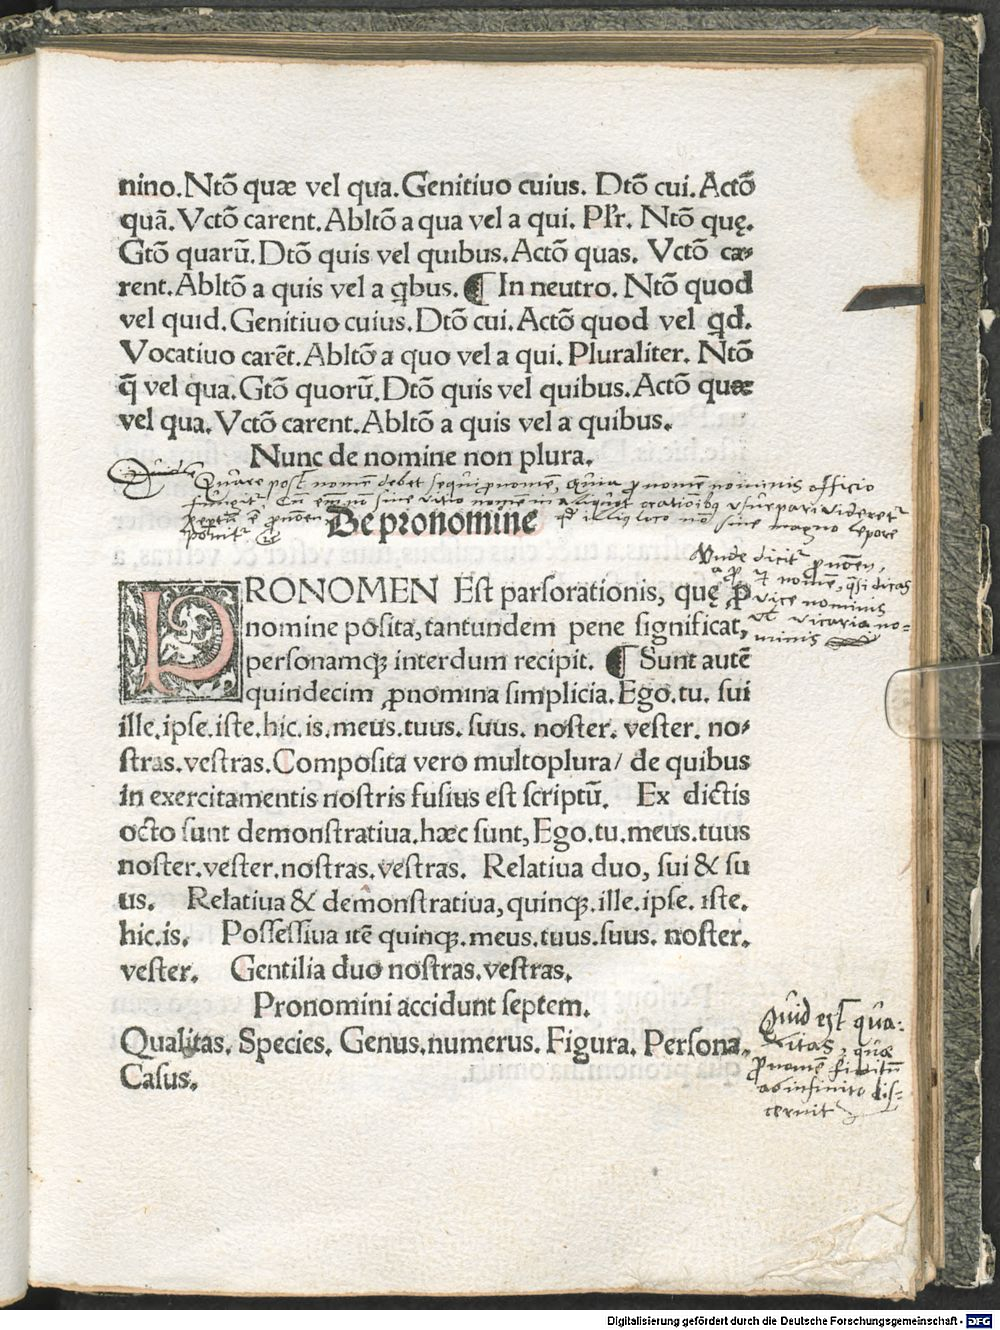 nino. Ntō quæ vel qua. Genitiuo cuius. Dtō cui. Actō
quā. Vctō carent. Abltō a qua vel a qui. Plr̄. Ntō quę.
Gtō quarū. Dtō quis vel quibus. Actō quas. Vctō ca⸗
rent. Abltō a quis vel a ꝗbus. ¶ In neutro. Ntō quod
vel quid. Genitiuo cuius. Dtō cui. Actō quod vel ꝗd.
Vocatiuo carēt. Abltō a quo vel a qui. Pluraliter. Ntō
q̄ vel qua. Gtō quorū. Dtō quis vel quibus. Actō quæ
vel qua. Vctō carent. Abltō a quis vel a quibus.
Nunc de nomine non plura.
Quare post nomē debet sequi ꝓnomē, Quia ꝓnomē nominis officio
fungitr̄ Cū em̄ nō sine vitio nomen in aliquot orationibꝯ videretr̄
De pronomine
illiꝯ loco nō sine magno lepore
Vnde dicitr̄ ꝓnōen,
nomē, q̄si dicas
vice nominis
vl̄ vicaria no⸗
minis
PRONOMEN Est parsorationis, quę ꝓ
nomine posita, tantundem pene significat,
personamqꝫ interdum recipit. ¶ Sunt autē
quindecim ꝓnomina simplicia. Ego. tu. sui
ille. ipse. iste. hic. is. meus. tuus. suus. noster. vester. no⸗
stras. vestras. Composita vero multoplura/ de quibus
in exercitamentis nostris fusius est scriptū. Ex dictis
octo sunt demonstratiua. hæc sunt, Ego. tu. meus. tuus
noster. vester. nostras. vestras. Relatiua duo, sui & su
us. Relatiua & demonstratiua, quinqꝫ. ille. ipse. iste.
hic. is. Possessiua itē quinqꝫ. meus. tuus. suus. noster.
vester. Gentilia duo nostras. vestras.
Pronomini accidunt septem.
Qualitas. Species. Genus. numerus. Figura. Persona.
Casus.
Quid est qua⸗
litas, quæ
ꝓnomē finitū
ab infinito dis⸗
cernit
Digitalisierung gefördert durch die Deutsche Forschungsgemeinschaft - DFG